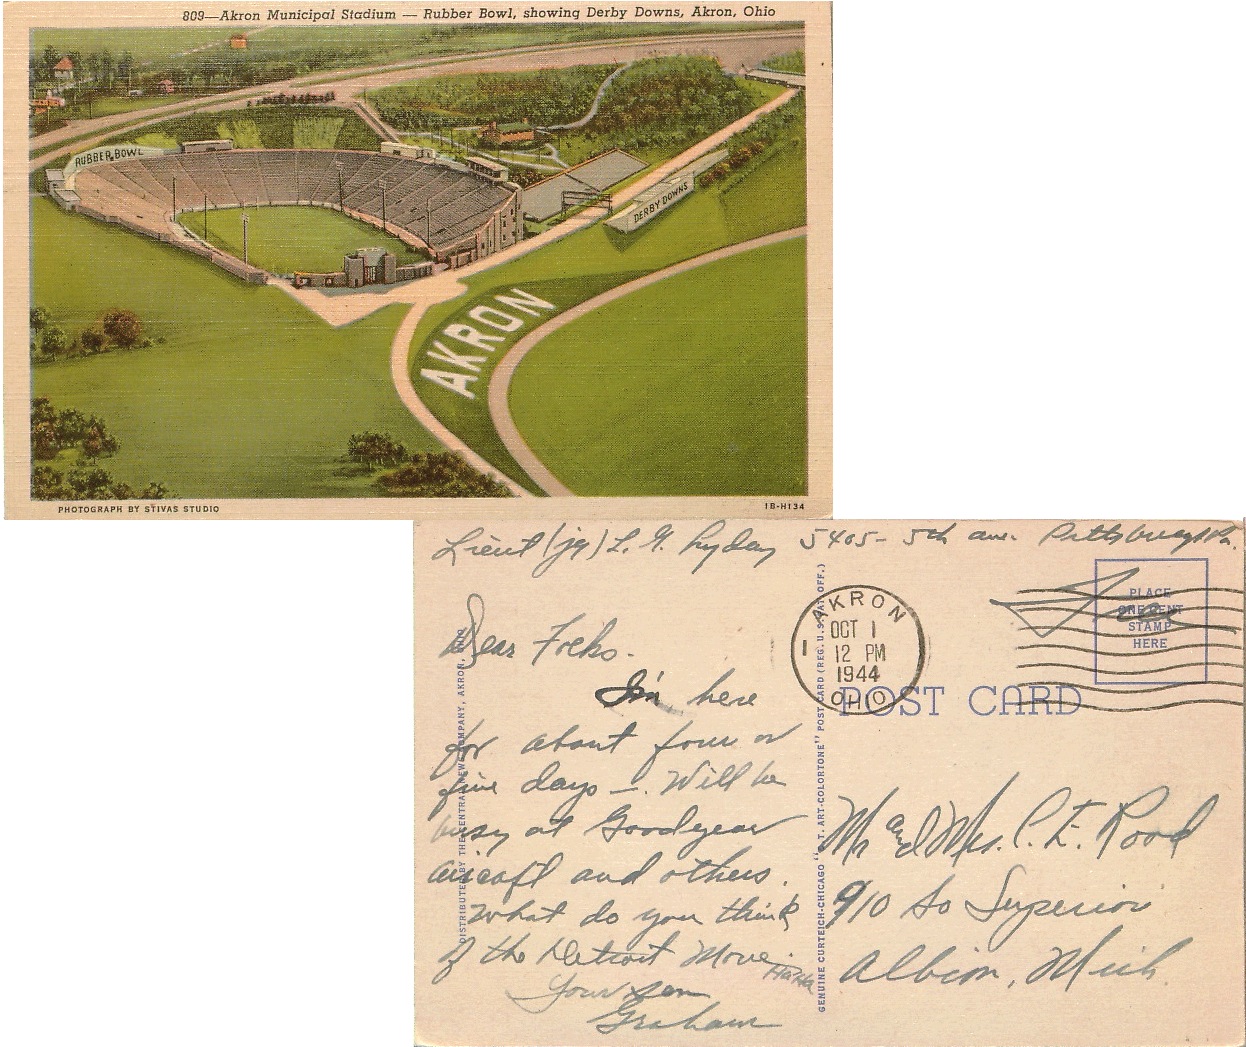 809—Akron Municipal Stadium — Rubber Bowl, showing Derby Downs, Akron, Ohio
RUBBER BOWL
DERBY DOWNS
AKRON
PHOTOGRAPH BY STIVAS STUDIO
1B-H134
Lieut (jg) L. G. 5405 - 5th ave. Pittsburgh Pa.
Dear Folks -
I'm here
for about four or
five days —. Will be
busy at Goodyear
aircraft and others.
What do you think
of the Detroit Move. HaHa
Your son
Graham
DISTRIBUTED BY THE CENTRAL NEWS COMPANY, AKRON, OHIO
GENUINE CURTEICH-CHICAGO "C.T. ART-COLORTONE" POST CARD (REG. U.S. PAT. OFF.)
AKRON
OCT 1
1 12 PM
1944
OHIO
Free
PLACE
ONE CENT
STAMP
HERE
POST CARD
Mr and Mrs. C. E. Rood
910 So Superior
Albion, Mich